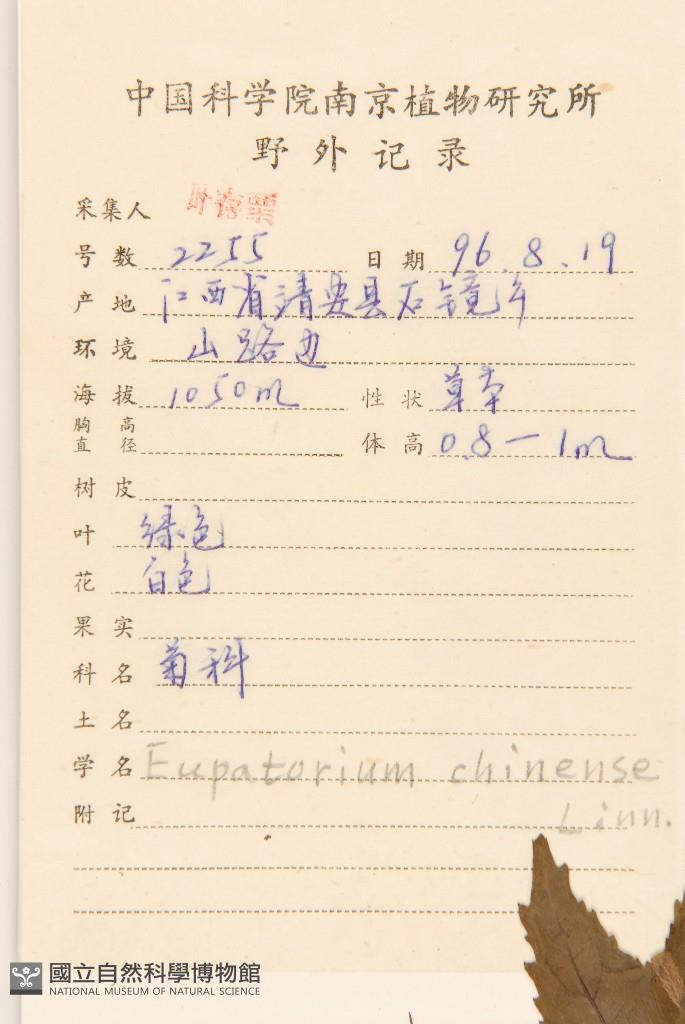 中国科学院南京植物研究所
野外记录
采集人
号数 2255 日期 96.8.19
产地 江西省靖安县石镜乡
环境 山路边
海拔 1050m 性状 草本
胸高直径 体高 0.8-1m
树皮
叶 绿色
花 白色
果实
科名 菊科
土名
学名 Eupatorium chinense
附记 Linn.
國立自然科學博物館
NATIONAL MUSEUM OF NATURAL SCIENCE